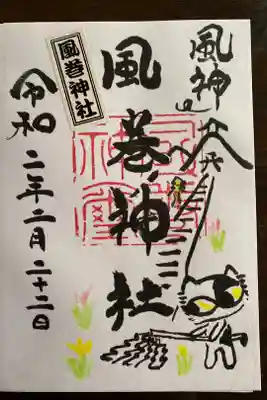 風神
風巻神社
風巻神社
令和二年二月二十二日